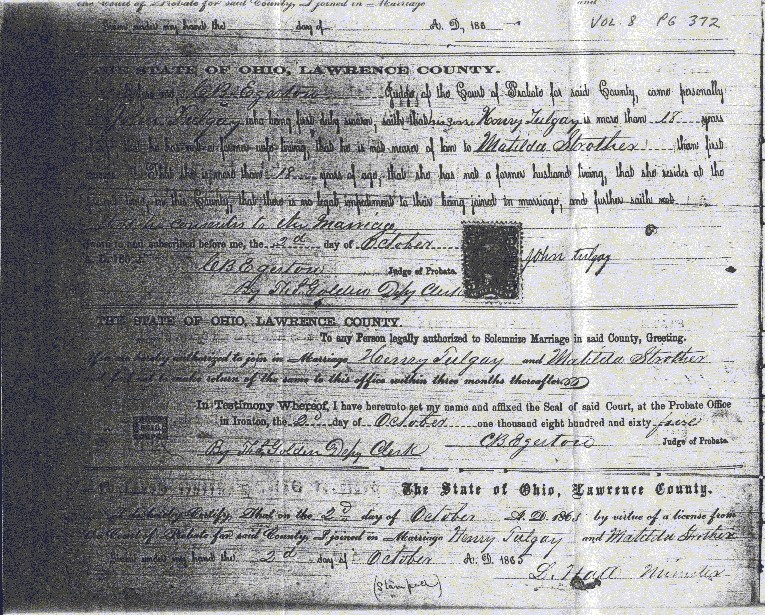 the Court of Probate for said County, I joined in Marriage and
Given under my hand the day of A. D., 186
VOL 8 PG 372
THE STATE OF OHIO, LAWRENCE COUNTY.
Before me C B Egerton Judge of the Court of Probate for said County, came personally
John Tulgay who being first duly sworn, saith that his son Henry Tulgay is more than 18 years
of age, that he has not a former wife living, that he is not nearer of kin to Matilda Strother than first
cousin. That she is more than 18 years of age, that she has not a former husband living, that she resides at the
present time, in this County, that there is no legal impediment to their being joined in marriage, and further saith not.
consenter to the Marriage
Sworn to and subscribed before me, the 2d day of October
John Tulgay
A. D. 186
C B Egerton Judge of Probate.
By Golden Depy Clerk
THE STATE OF OHIO, LAWRENCE COUNTY.
To any Person legally authorized to Solemnize Marriage in said County, Greeting.
You are hereby authorized to join in Marriage Henry Tulgay and Matilda Strother
to make return of the same to this office within three months thereafter
In Testimony Whereof, I have hereunto set my name and affixed the Seal of said Court, at the Probate Office
in Ironton, the 2d day of October one thousand eight hundred and sixty five
By Golden Depy Clerk C B Egerton Judge of Probate.
The State of Ohio, Lawrence County.
I hereby Certify, That on the 2d day of October A. D. 1865 by virtue of a license from
the Court of Probate for said County, I joined in Marriage Henry Tulgay and Matilda Strother
Given under my hand the 2d day of October A. D. 1865
L. Hall Minister